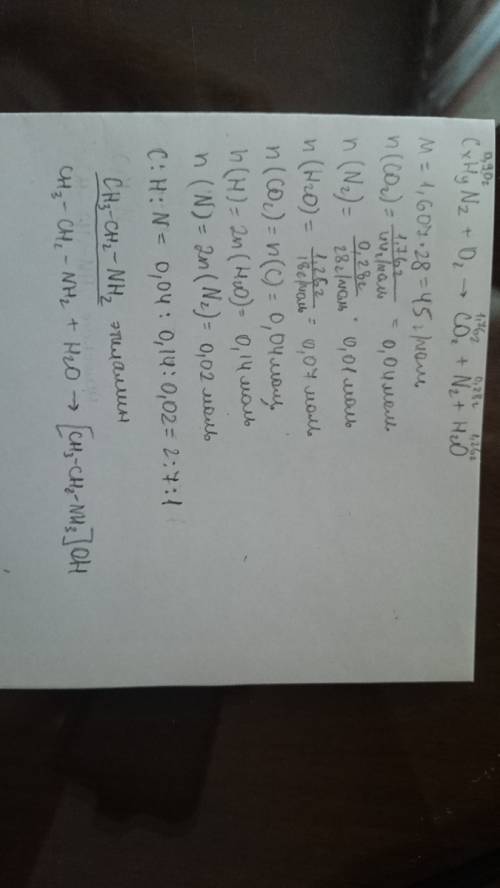 0,90г 1,76г 0,28г 1,26г
CxHyNz + O₂ → CO₂ + N₂ + H₂O
M = 1,607·28 = 45 г/моль
n(CO₂) = 1,76г / 44г/моль = 0,04 моль
n(N₂) = 0,28г / 28г/моль = 0,01 моль
n(H₂O) = 1,26г / 18г/моль = 0,07 моль
n(CO₂) = n(C) = 0,04 моль
n(H) = 2n(H₂O) = 0,14 моль
n(N) = 2n(N₂) = 0,02 моль
C : H : N = 0,04 : 0,14 : 0,02 = 2 : 7 : 1
CH₃-CH₂-NH₂ этиламин
CH₃-CH₂-NH₂ + H₂O → [CH₃-CH₂-NH₃]OH